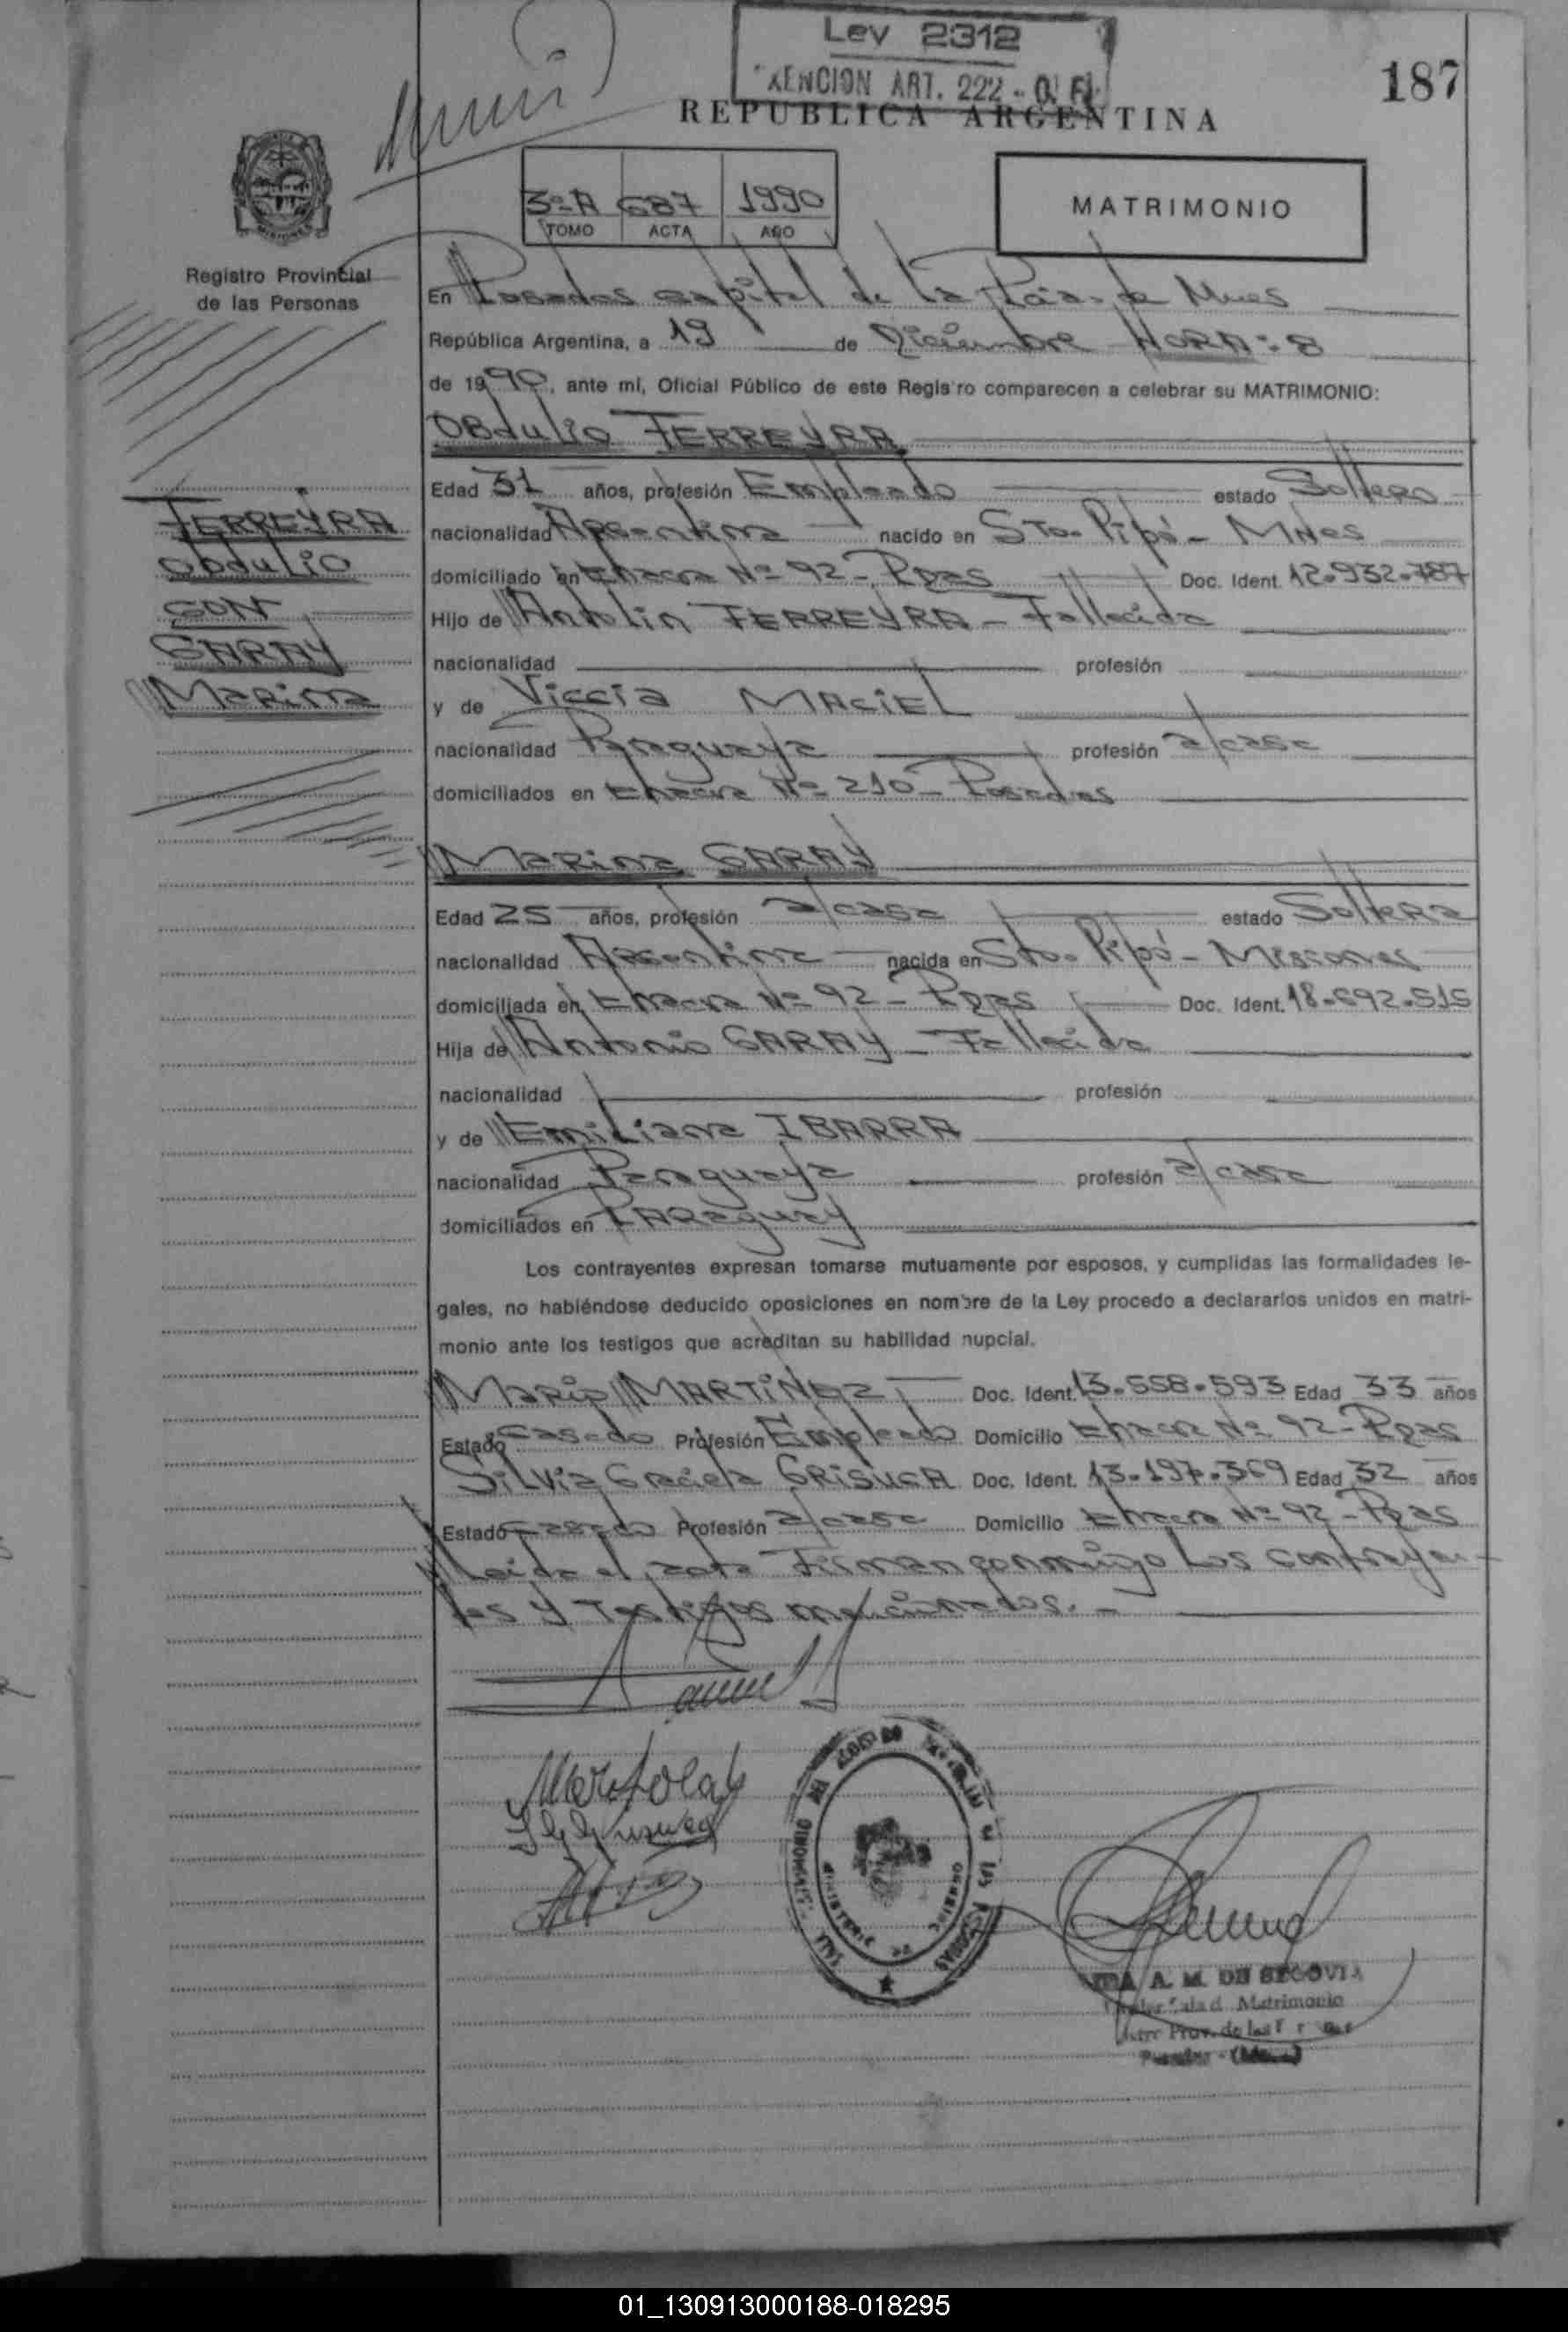 Ley 2312
EXENCION ART. 222 - C. F.
187
REPUBLICA ARGENTINA
3º A 687 1990
TOMO ACTA AÑO
MATRIMONIO
Registro Provincial
de las Personas
En Posadas capital de la Pcia. de Mnes
República Argentina, a 19 de Diciembre HORA: 8
de 1990, ante mí, Oficial Público de este Registro comparecen a celebrar su MATRIMONIO:
Obdulio FERREYRA
FERREYRA
Obdulio
CON
GARAY
Marina
Edad 31 años, profesión Empleado estado Soltero
nacionalidad Argentina nacido en Sto. Pipó - Mnes
domiciliado en Chacra Nº 92 - Pdas Doc. Ident. 12.932.787
Hijo de Antolin FERREYRA - Fallecido
nacionalidad profesión
y de MACIEL
nacionalidad Paraguaya profesión a/casa
domiciliados en Chacra Nº 210 - Posadas
Marina GARAY
Edad 25 años, profesión a/casa estado Soltera
nacionalidad Argentina nacida en Sto. Pipó - Misiones
domiciliada en Chacra Nº 92 - Pdas Doc. Ident. 18.692.515
Hija de Antonio GARAY - Fallecido
nacionalidad profesión
y de Emiliana IBARRA
nacionalidad Paraguaya profesión a/casa
domiciliados en PARAguay
Los contrayentes expresan tomarse mutuamente por esposos, y cumplidas las formalidades le-
gales, no habiéndose deducido oposiciones en nombre de la Ley procedo a declararlos unidos en matri-
monio ante los testigos que acreditan su habilidad nupcial.
Mario MARTINEZ Doc. Ident. 13.558.593 Edad 33 años
Estado Casado Profesión Empleado Domicilio Chacra Nº 92 - Pdas
Silvia Graciela GRISUCA Doc. Ident. 13.197.369 Edad 32 años
Estado Casado Profesión a/casa Domicilio Chacra Nº 92 - Pdas
Leida el acta Firman conmigo Los contrayen-
tes y Testigos mencionados. -
A. M. DE SEGOVIA
Matrimonio
Prov. de las
01_130913000188-018295